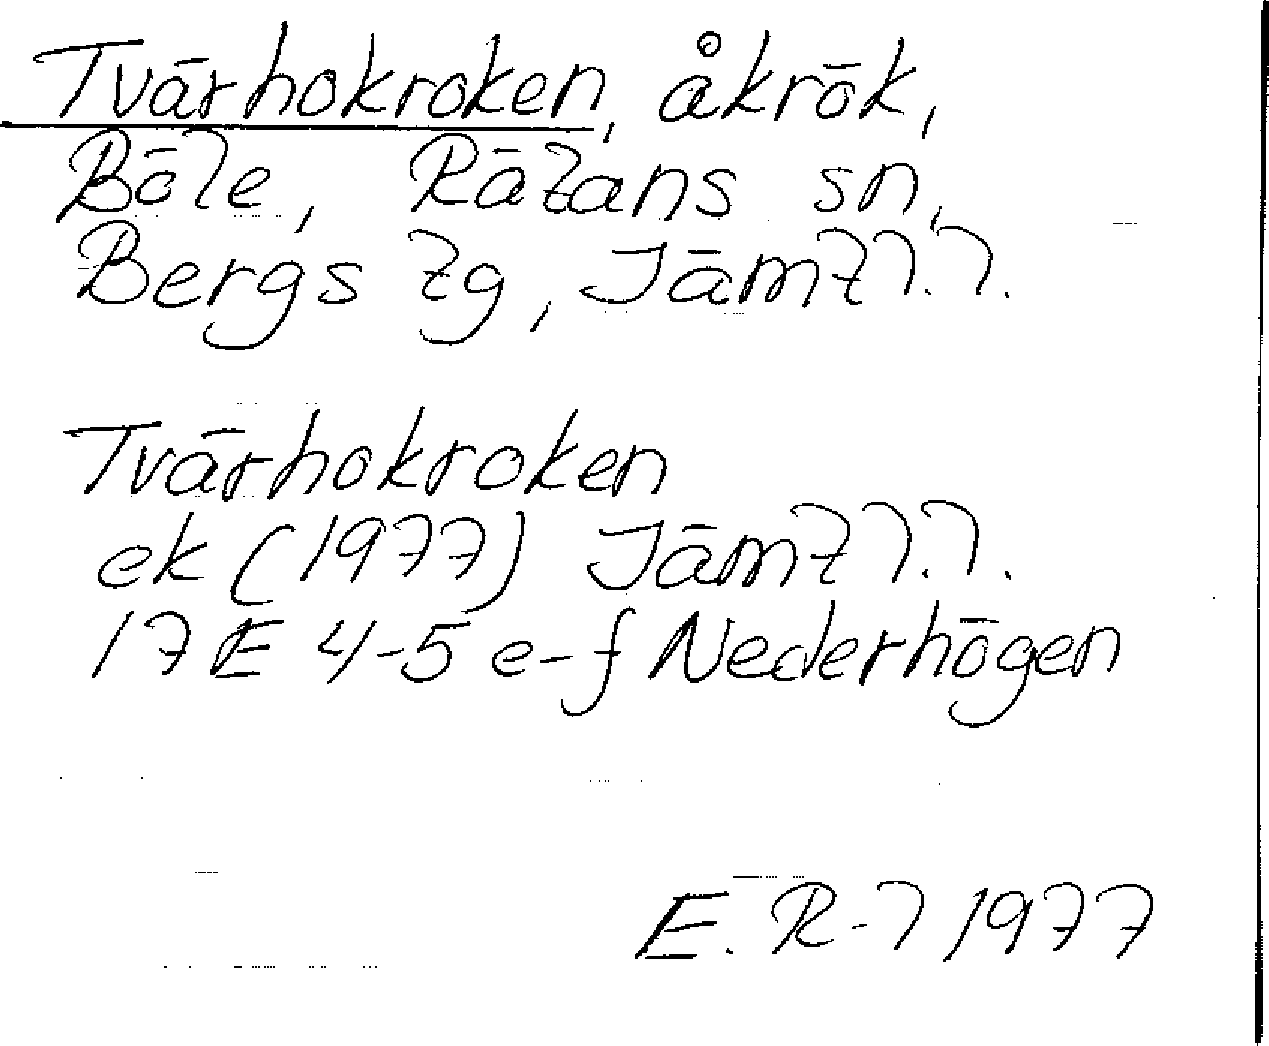 Tvärhokroken, åkrök,
Böle, Rätans sn,
Bergs tg, Jämtl.l.
Tvärhokroken
ek (1977) Jämtl.l.
17E 4-5 e-f Nederhögen
E. R-l 1977